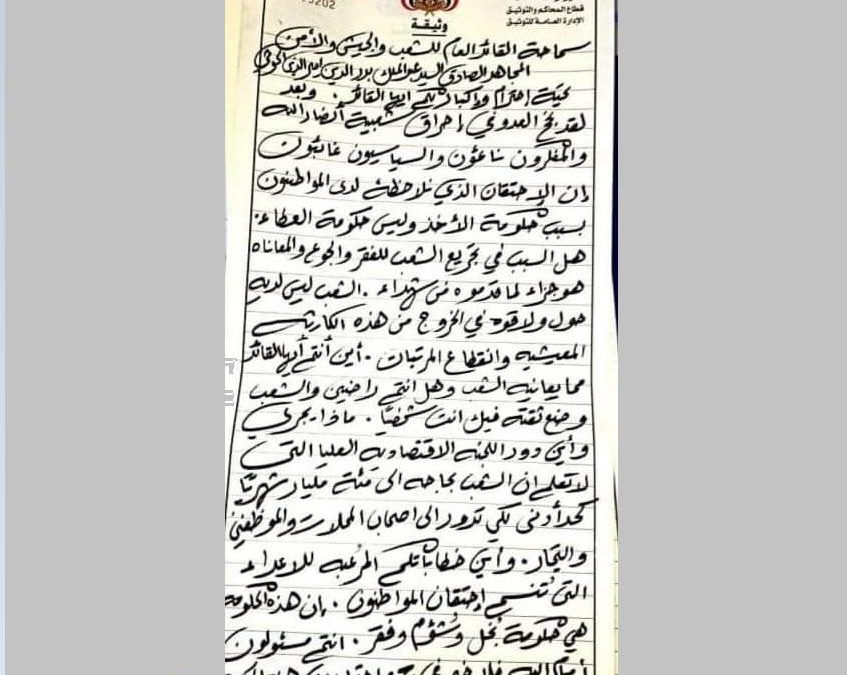 5202
قطاع المحاكم والتوثيق
الإدارة العامة للتوثيق
وثيقة
سماحة القائد العام للشعب والجيش والأمن
المجاهد الصادق السيد عبدالملك بدرالدين اميرالدين الحوثي
تحية إحترام وإكبار لكم ايها القائد. وبعد
لقد نجح العدو في إحراق شعبية أنصار الله
والمفكرون نائمون والسياسيون غائبون
إن الإحتقان الذي نلاحظه لدى المواطنون
بسبب حكومة الأخذ وليس حكومة العطاء.
هل السبب في تجريع الشعب للفقر والجوع والمعاناه
هو جزاء لما قدموه من شهداء. الشعب ليس لديه
حول ولا قوه في الخروج من هذه الكارثه
المعيشيه وانقطاع المرتبات. أين أنتم أيها القائد
مما يعانيه الشعب وهل انتم راضين والشعب
وضع ثقته فيك انت شخصياً. ماذا يجري
وأين دور اللجنه الاقتصاديه العليا التي
لا تعلم ان الشعب بحاجه الى مئة مليار شهرياً
كحد أدنى لكي تدور الى اصحاب المحلات والموظفين
والتجار. وأين خطاباتكم المرعبه للاعداء
التي تُنسم إحتقان المواطنون. إن هذه الحكومة
هي حكومة بُخل وشؤم وفقر. انتم مسئولون
أمام الله فلا خير في